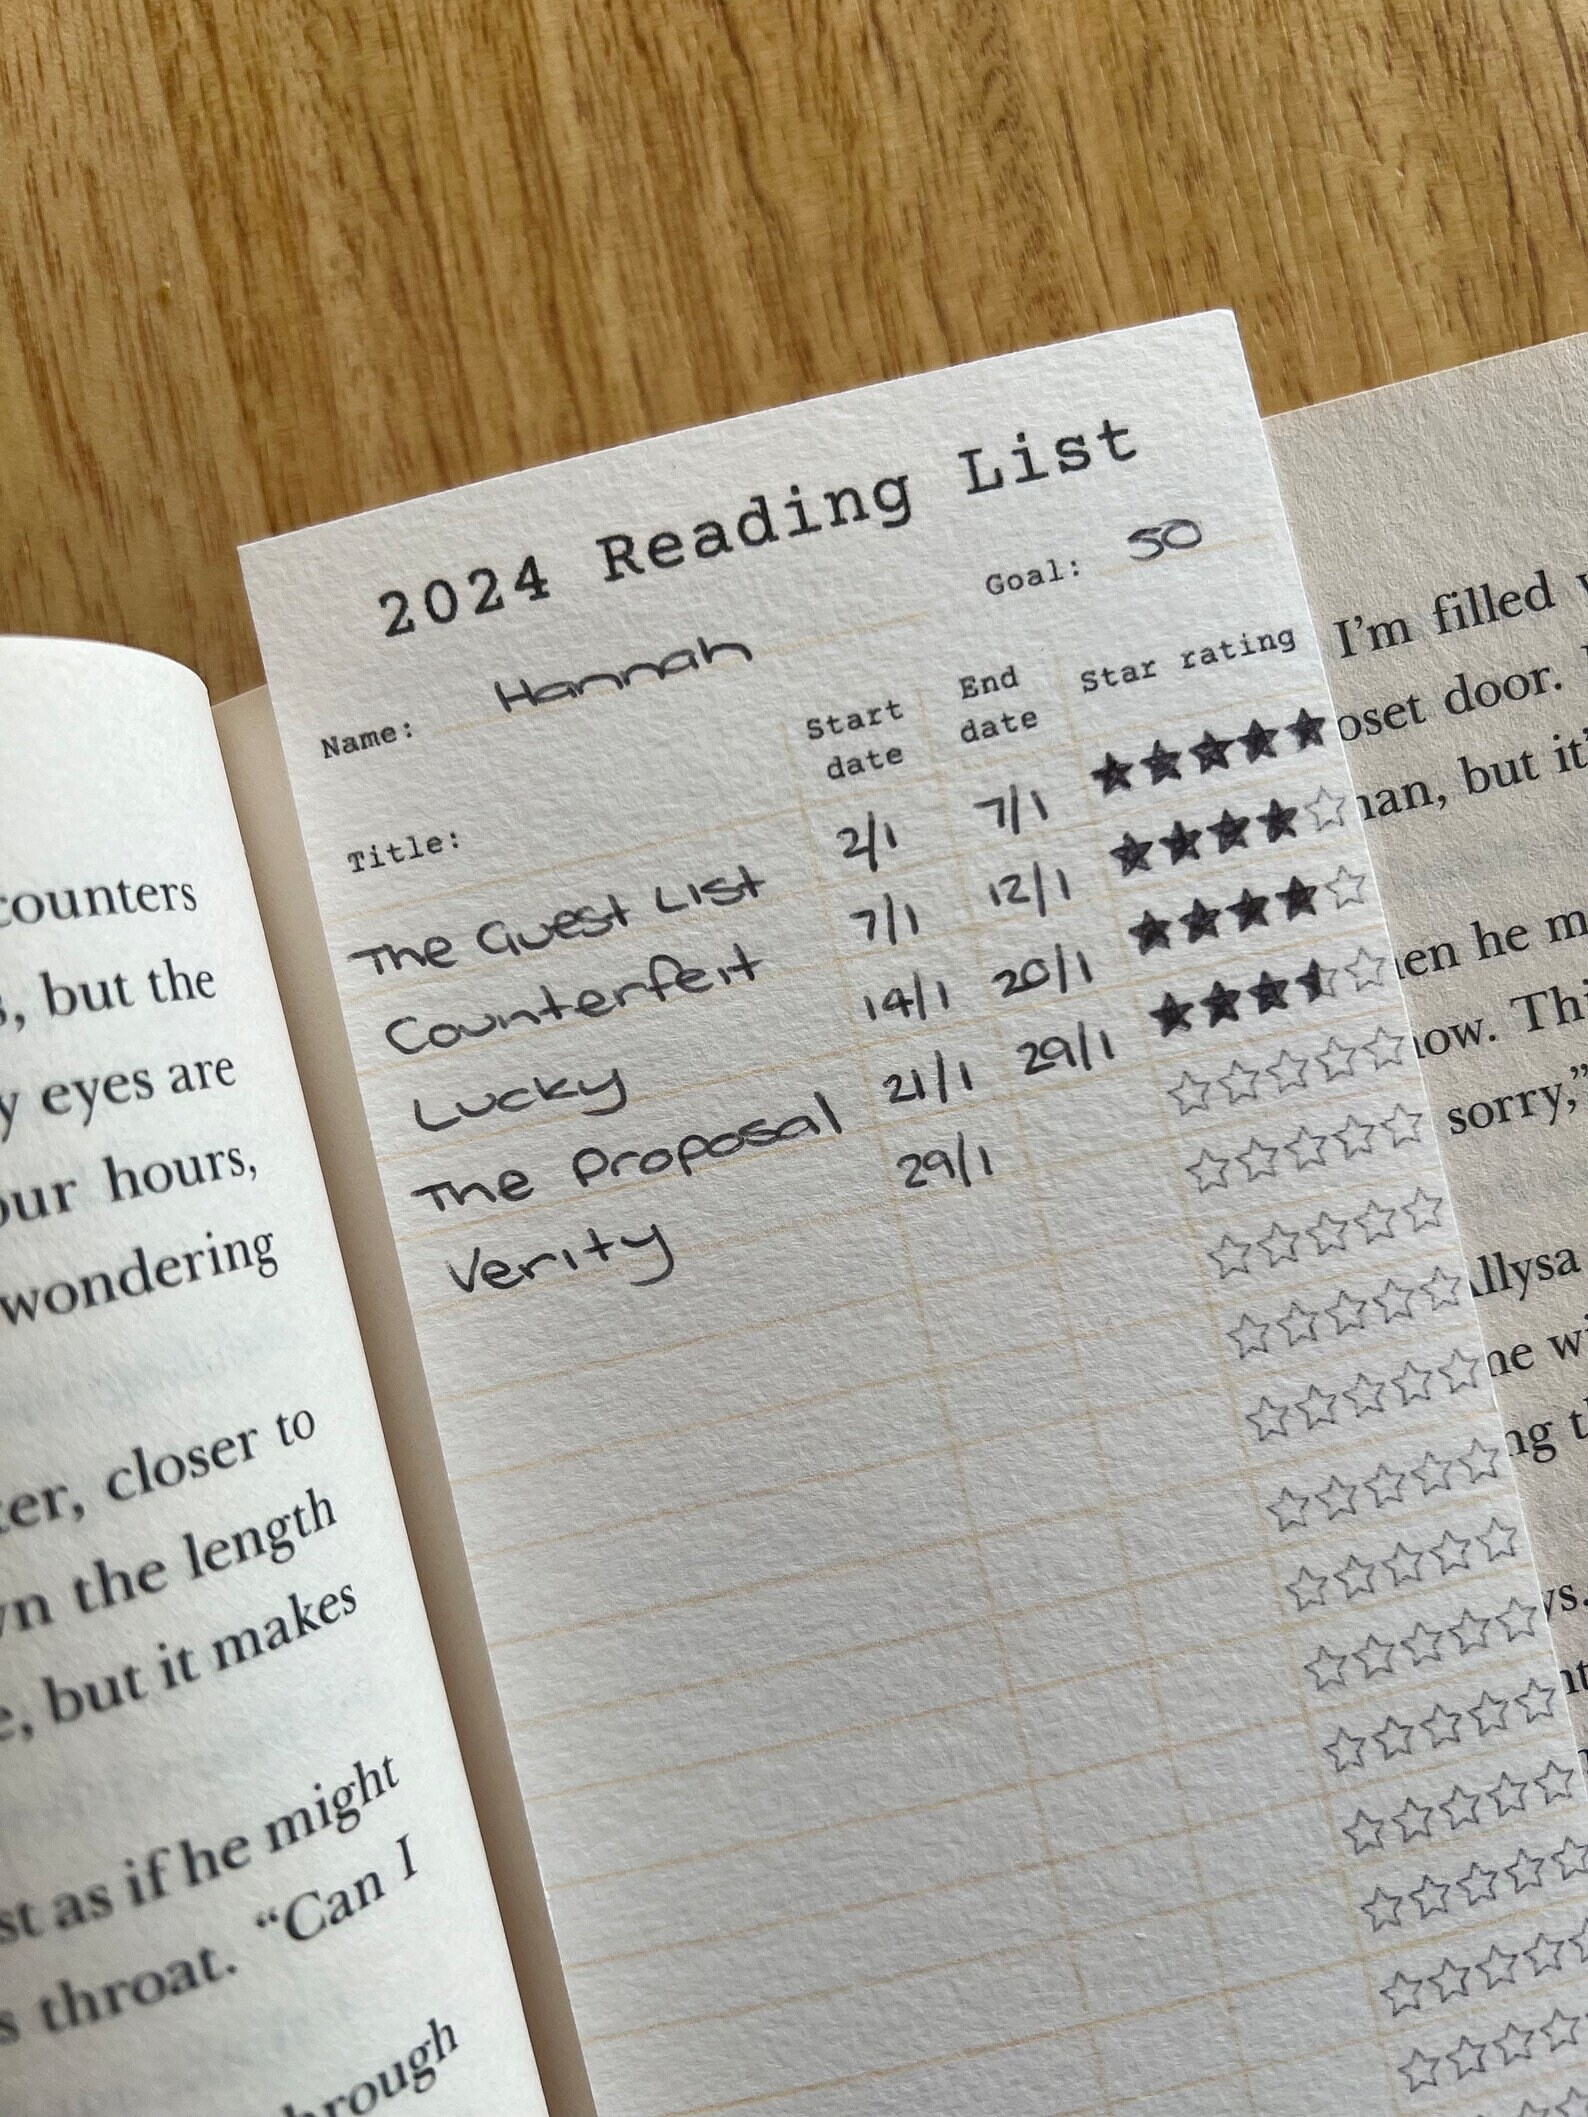 2024 Reading List
Name: Hannah Goal: 50
Title: Start date End date Star rating
The Guest List 2/1 7/1
Counterfeit 7/1 12/1
Lucky 14/1 20/1
The Proposal 21/1 29/1
Verity 29/1
counters
, but the
y eyes are
our hours,
wondering
ter, closer to
wn the length
e, but it makes
st as if he might
s throat. “Can I
hrough
I’m filled
oset door.
nan, but it’
en he m
ow. Thi
sorry,”
Allysa
ne wi
ng t
ys.
nt